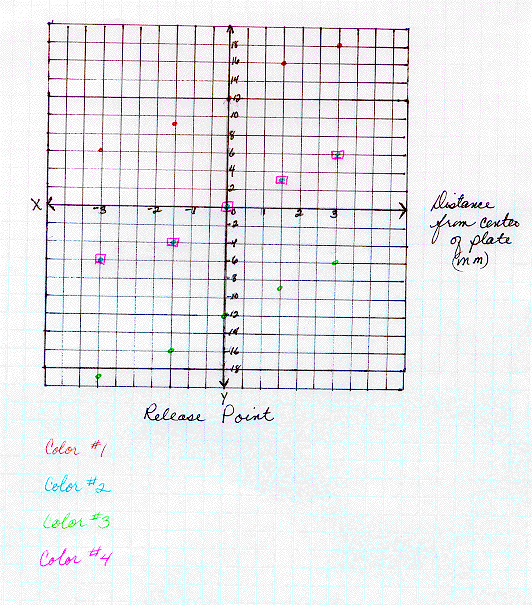 18
16
14
12
10
8
6
4
2
X -3 -2 -1 0 1 2 3
-2
-4
-6
-8
-10
-12
-14
-16
-18
Y
Distance
from center
of plate
(mm)
Release Point
Color #1
Color #2
Color #3
Color #4